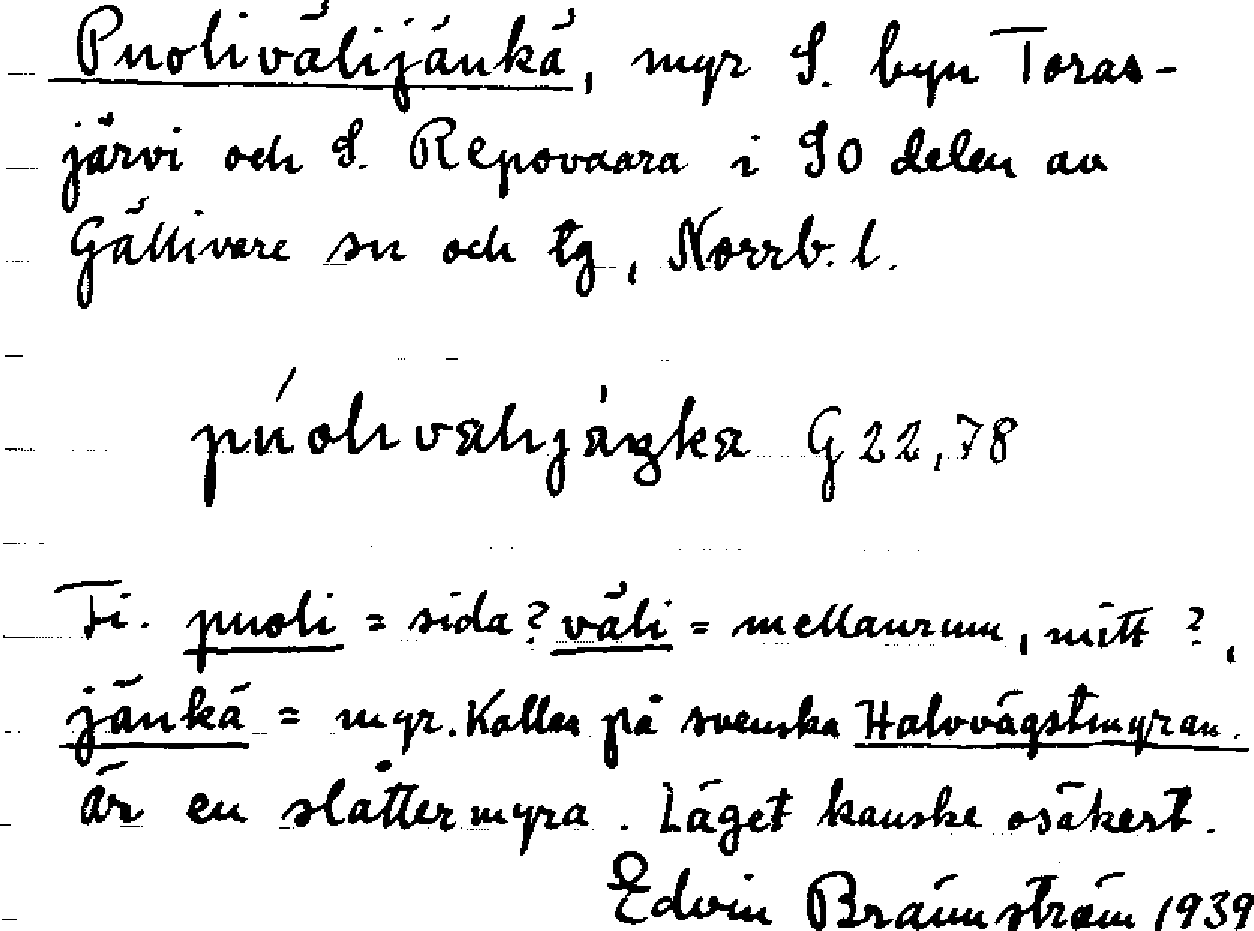 Puolivälijänkä, myr S. byn Toras-
järvi och S. Repovaara i SO delen av
Gällivare sn och tg, Norrb. l.
G 22,78
Fi. puoli = sida? väli = mellanrum, mitt?,
jänkä = myr. Kallas på svenska Halvvägstmyran.
Är en slåttermyra. Läget kanske osäkert.
Edwin Brännström 1939